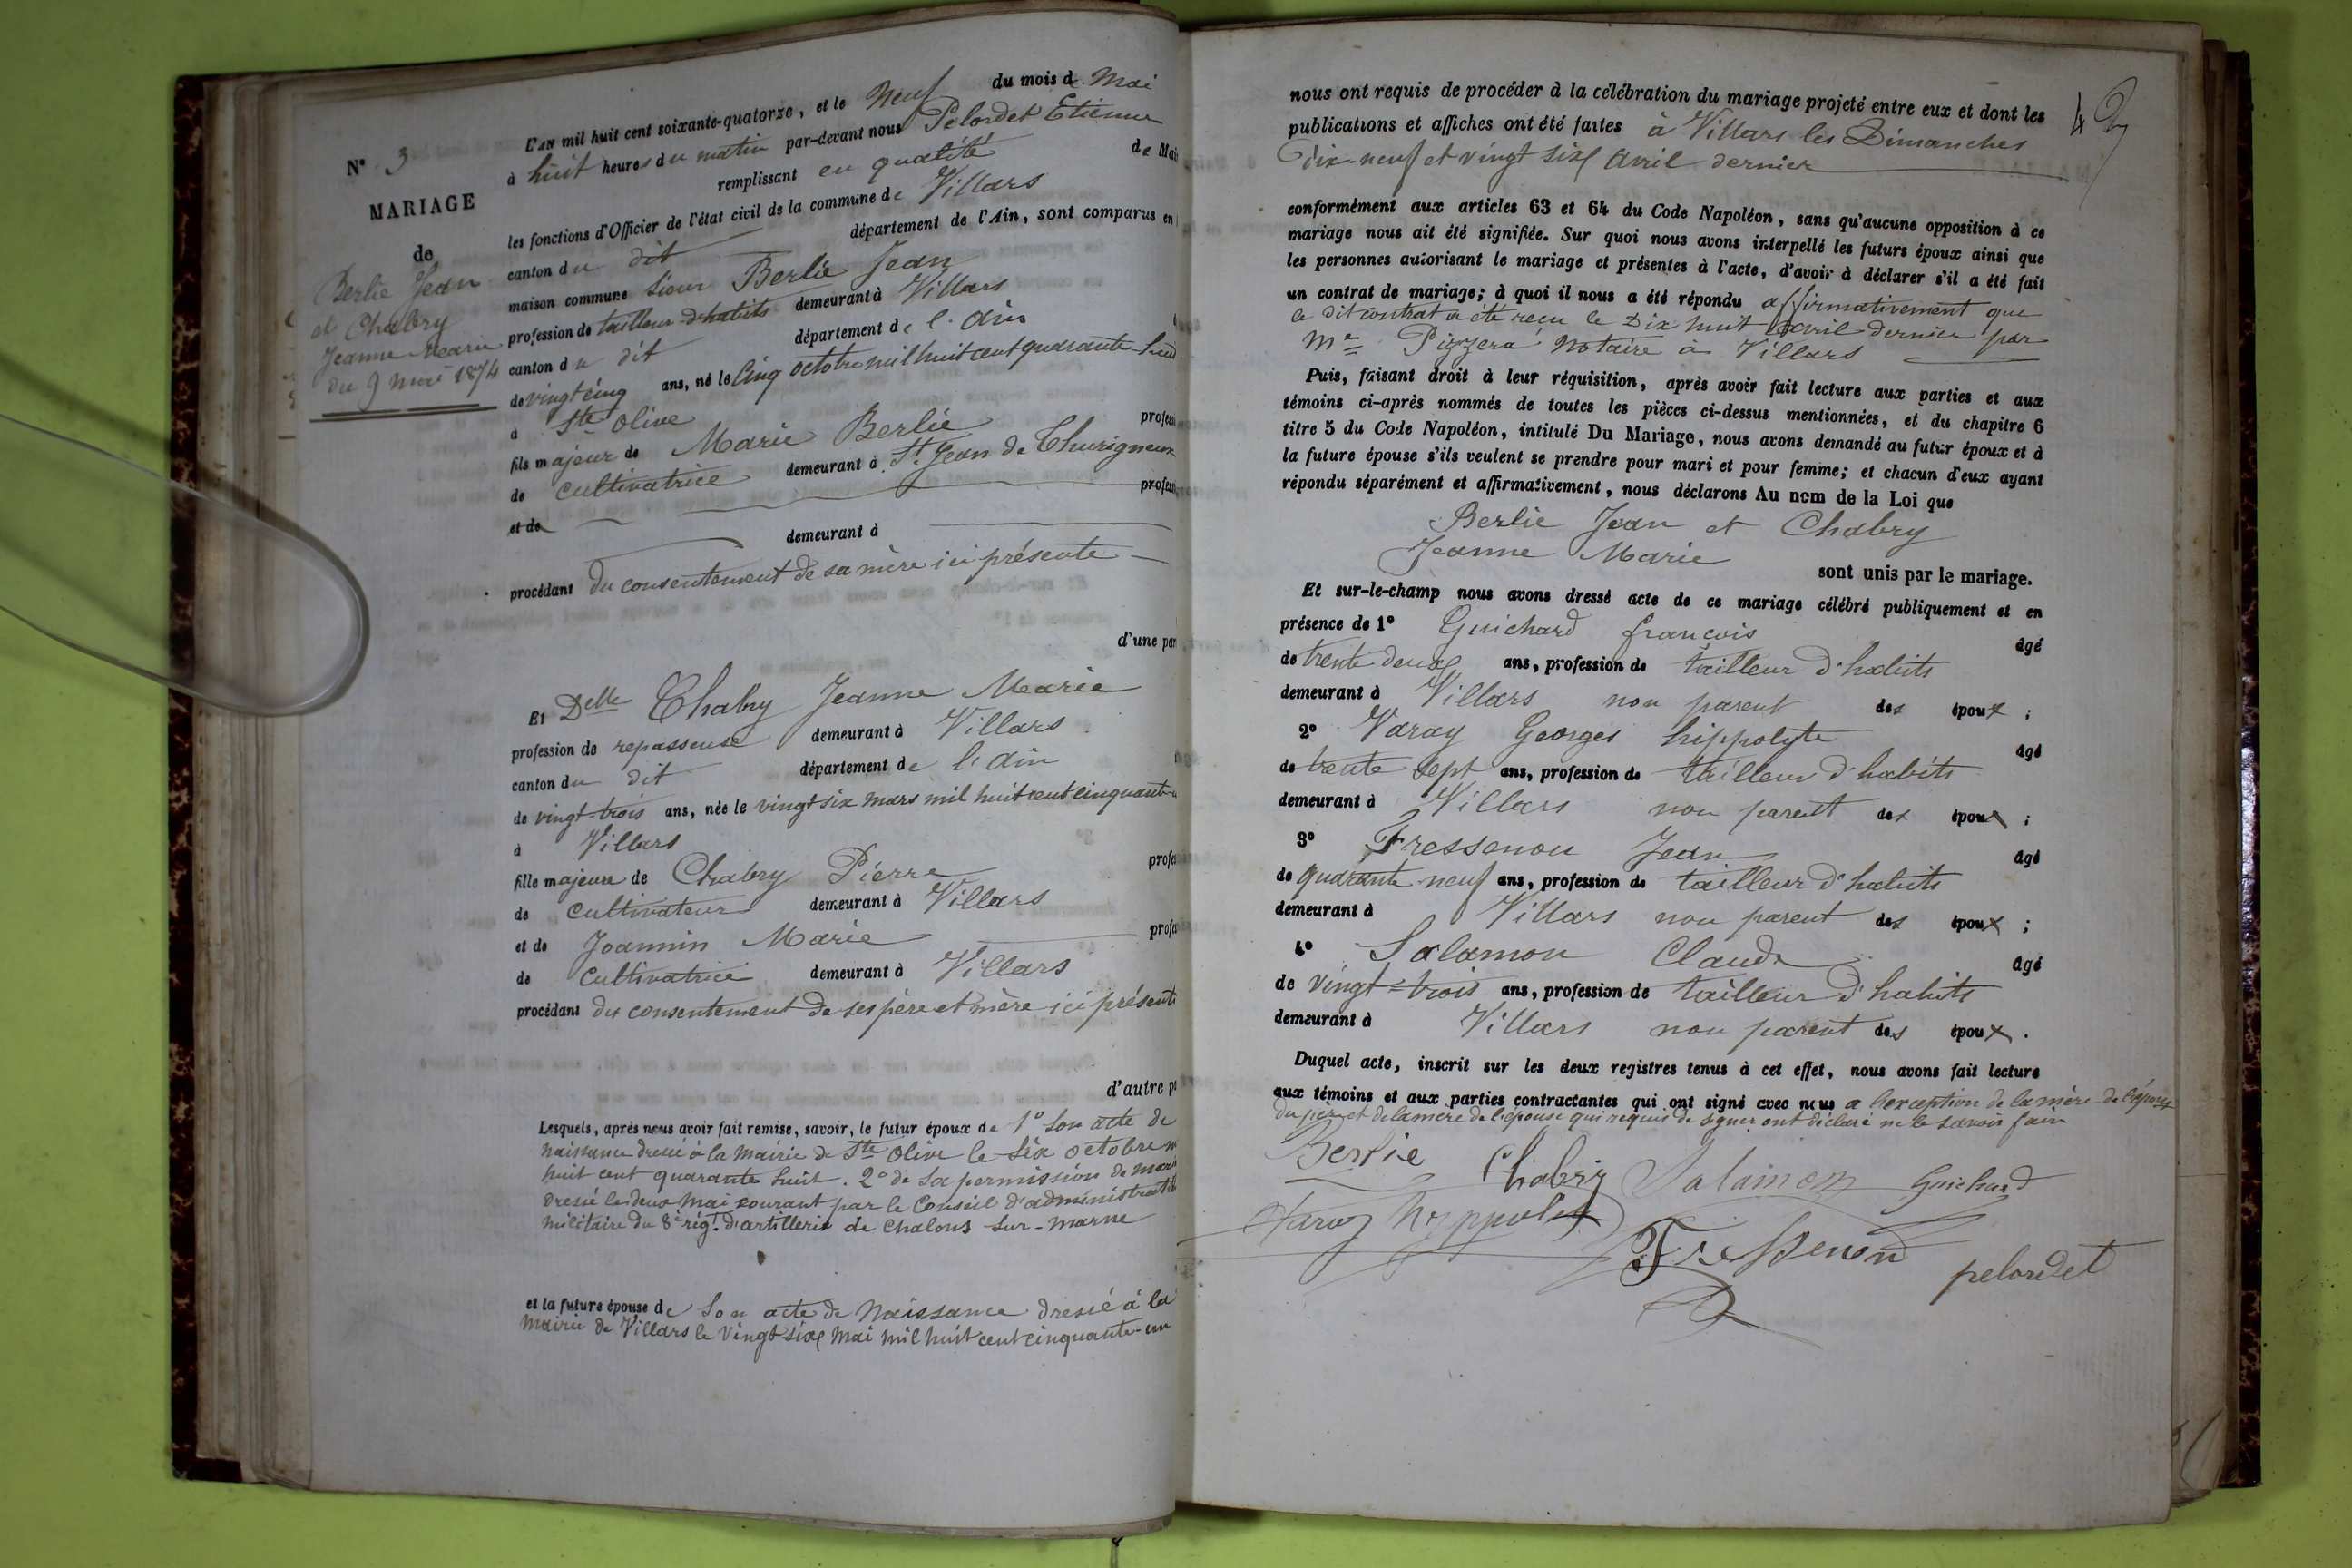 N° 3
MARIAGE
de
Berlie Jean
et Chabry
Jeanne Marie
du 9 mai 1874
L'an mil huit cent soixante-quatorze, et le Neuf du mois de Mai
à huit heures du matin par-devant nous Pelordet Etienne
remplissant en qualité de Mai
les fonctions d'Officier de l'état civil de la commune de Villars
canton du dit département de l'Ain, sont comparus en
maison commune Sieur Berlie Jean
profession de tailleur d'habits demeurant à Villars
canton du dit département de l'Ain
de vingt cinq ans, né le Cinq octobre mil huit cent quarante huit
à Ste Olive
fils majeur de Marie Berlie profess
de cultivatrice demeurant à St Jean de Thurigneux
et de profess
demeurant à
procédant du consentement de sa mère ici présente
d'une par
Et Delle Chabry Jeanne Marie
profession de repasseuse demeurant à Villars
canton du dit département de l'Ain
de vingt-trois ans, née le vingt six mars mil huit cent cinquante
à Villars
fille majeure de Chabry Pierre profes
de cultivateur demeurant à Villars
et de Joannin Marie profes
de cultivatrice demeurant à Villars
procédant du consentement de ses père et mère ici présents
d'autre pa
Lesquels, après nous avoir fait remise, savoir, le futur époux de 1° son acte de
naissance dressé à la mairie de Ste Olive le six octobre m
huit cent quarante huit. 2° de sa permission de mari
dressé le deux mai courant par le Conseil d'administrat
militaire du 8e régt d'artillerie de Chalons-sur-marne
et la future épouse de son acte de Naissance dressé à la
mairie de Villars le vingt six mai mil huit cent cinquante-un
nous ont requis de procéder à la célébration du mariage projeté entre eux et dont les
publications et affiches ont été faites à Villars les Dimanches
dix-neuf et vingt six avril dernier
conformément aux articles 63 et 64 du Code Napoléon, sans qu'aucune opposition à ce
mariage nous ait été signifiée. Sur quoi nous avons interpellé les futurs époux ainsi que
les personnes autorisant le mariage et présentes à l'acte, d'avoir à déclarer s'il a été fait
un contrat de mariage; à quoi il nous a été répondu affirmativement que
le dit contrat a été reçu le Dix huit avril dernier par
Me Pizzera Notaire à Villars
Puis, faisant droit à leur réquisition, après avoir fait lecture aux parties et aux
témoins ci-après nommés de toutes les pièces ci-dessus mentionnées, et du chapitre 6
titre 5 du Code Napoléon, intitulé Du Mariage, nous avons demandé au futur époux et à
la future épouse s'ils veulent se prendre pour mari et pour femme; et chacun d'eux ayant
répondu séparément et affirmativement, nous déclarons Au nom de la Loi que
Berlie Jean et Chabry
Jeanne Marie
sont unis par le mariage.
Et sur-le-champ nous avons dressé acte de ce mariage célébré publiquement et en
présence de 1° Guichard françois âgé
de trente deux ans, profession de tailleur d'habits
demeurant à Villars non parent des époux ;
2° Varay Georges hippolyte âgé
de trente sept ans, profession de tailleur d'habits
demeurant à Villars non parent des époux ;
3° Fressenon Jean âgé
de quarante neuf ans, profession de tailleur d'habits
demeurant à Villars non parent des époux ;
4° Salamon Claude âgé
de vingt-trois ans, profession de tailleur d'habits
demeurant à Villars non parent des époux.
Duquel acte, inscrit sur les deux registres tenus à cet effet, nous avons fait lecture
aux témoins et aux parties contractantes qui ont signé avec nous a l'exception de la mère de l'époux
du père et de la mère de l'épouse qui requis de signer ont déclaré ne le savoir faire
Berlie Chabry Salamon Guichard
Varay hyppolite
Fressenon
pelordet